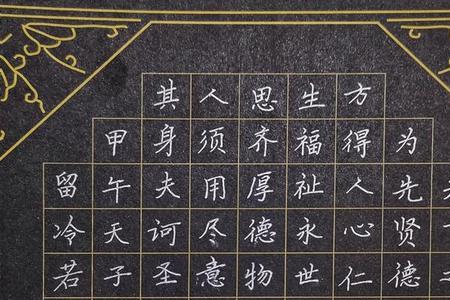 为先贤德
方得人心仁
生福祉永世
思齐厚德物
人须用尽意
其身夫诃圣
甲午天子
留冷若